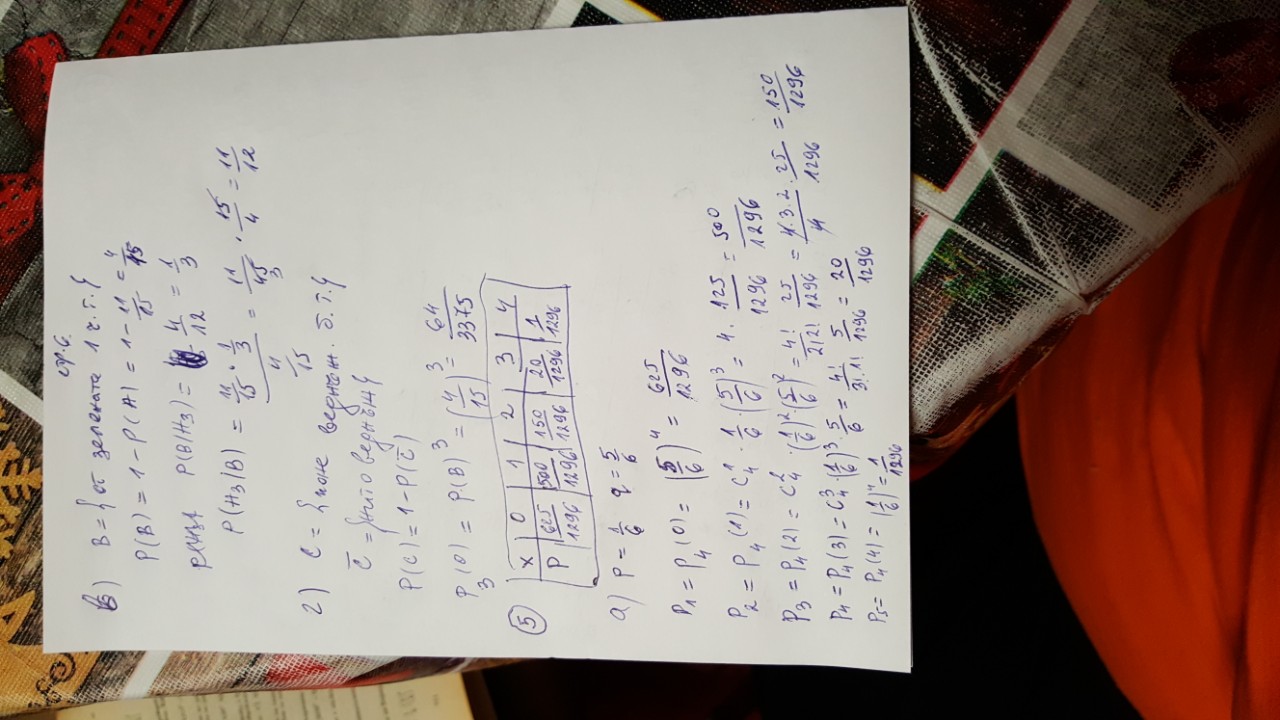 стр.6.
в) B = { от зелената 1 ч.т.}
P(B) = 1 - P(A) = 1 - 11/15 = 4/15
P(B/H₃) = 4/12 = 1/3
P(H₃/B) = (11/15 · 1/3)/(4/15) = 11/45 · 15/4 = 11/12
3
г) C = { поне веднъж. б.т.}
C̅ = {нито веднъж}
P(C) = 1 - P(C̅)
P₃(0) = P(B)³ = (4/15)³ = 64/3375
5 x | 0 | 1 | 2 | 3 | 4
P | 625/1296 | 500/1296 | 150/1296 | 20/1296 | 1/1296
а) p = 1/6 q = 5/6
P₁ = P₄(0) = (5/6)⁴ = 625/1296
P₂ = P₄(1) = C₄¹ · 1/6 · (5/6)³ = 4 · 125/1296 = 500/1296
P₃ = P₄(2) = C₄² · (1/6)² · (5/6)² = 4!/2!2! 25/1296 = 4·3·2/4 · 25/1296 = 150/1296
P₄ = P₄(3) = C₄³ · (1/6)³ · 5/6 = 4!/3!·1! 5/1296 = 20/1296
P₅ = P₄(4) = (1/6)⁴ = 1/1296